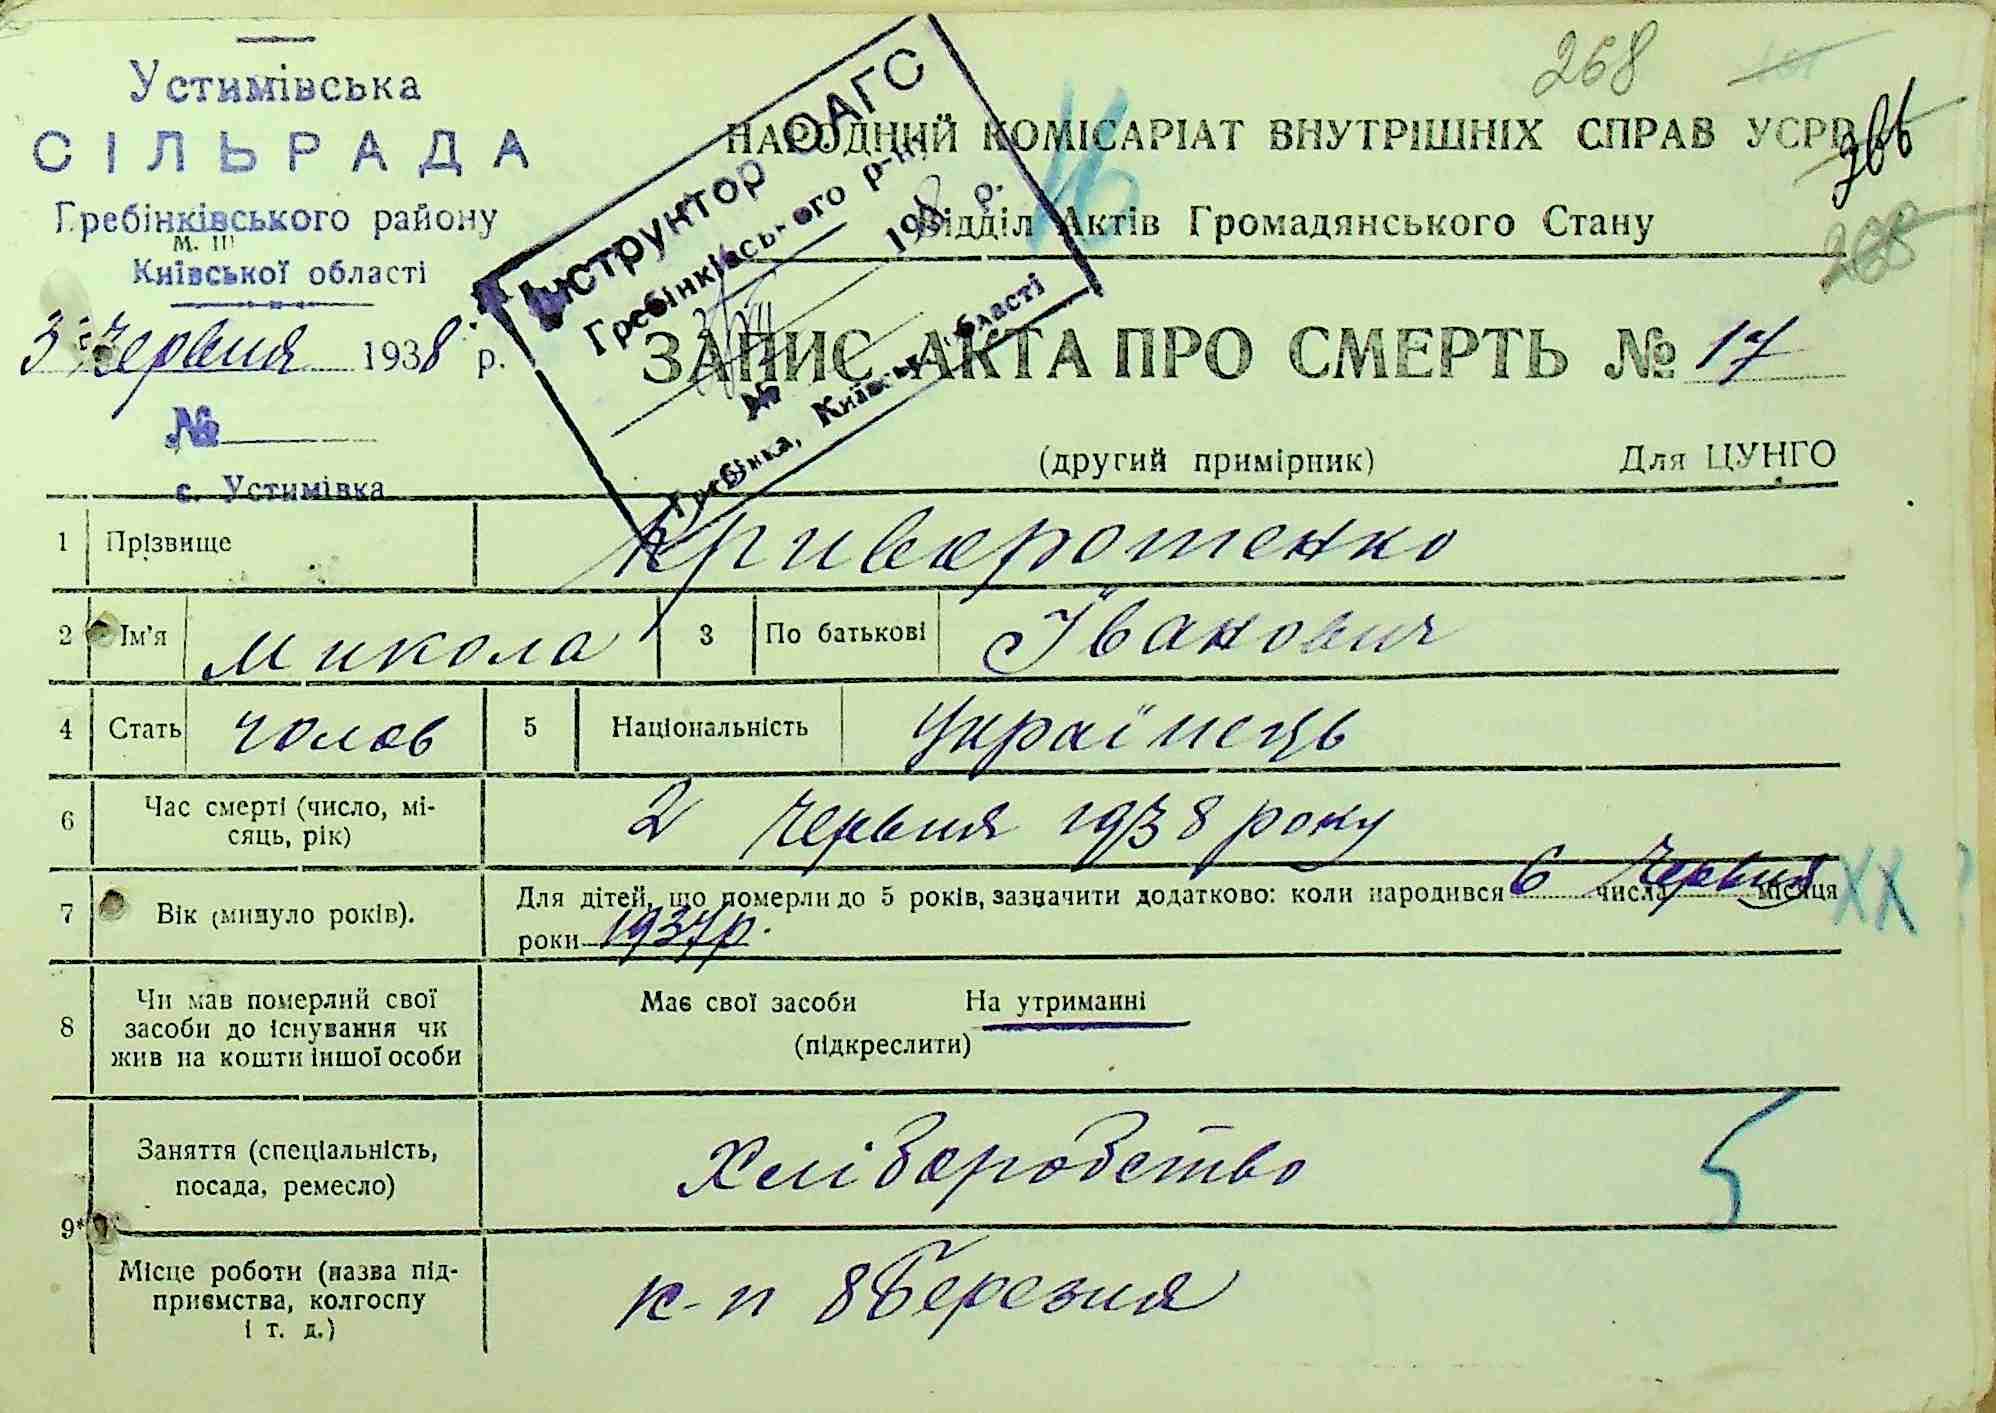 268
Устимівська
СІЛЬРАДА
Гребінківського району
м. ІІІ
Київської області
3 Червня 1938 р.
№
с. Устимівка
Інструктор ОАГС
Гребінківського р-ну
193 р.
№
Гребінка, Київськ. області
НАРОДНИЙ КОМІСАРІАТ ВНУТРІШНІХ СПРАВ УСРР
16
Відділ Актів Громадянського Стану
268
ЗАПИС АКТА ПРО СМЕРТЬ № 17
(другий примірник) Для ЦУНГО
1 Прізвище Криворотенко
2 Ім'я Микола 3 По батькові Іванович
4 Стать чолов 5 Національність Українець
6 Час смерті (число, мі-
сяць, рік) 2 Червня 1938 року
7 Вік (минуло років). Для дітей, що померли до 5 років, зазначити додатково: коли народився 6 числа Червня місяця
роки 1937р. XX
8 Чи мав померлий свої
засоби до існування чи
жив на кошти іншої особи
Має свої засоби На утриманні
(підкреслити)
9* Заняття (спеціальність,
посада, ремесло) Хліборобство 5
Місце роботи (назва під-
приємства, колгоспу
і т. д.) к-п 8 Березня